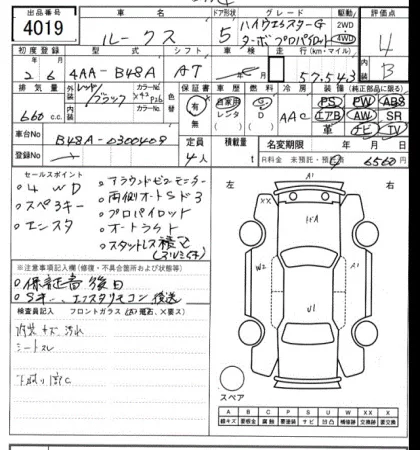 出品番号 車名 ドア形状 グレード 駆動 評価点
4019 ルークス 5 ハイウェイスターG 2WD 4
ターボプロパイロット 4WD B
初度登録 型式 シフト 車検 走行(km・マイル)
2 6 4AA-B48A AT 57,543
排気量 外装 カラーNo. 色替 保証書 車歴 燃料 冷房 装備(純正部品に限る)
660cc レッド 有 自家用 G AAC PS PW ABS
内装 ブラック カラーNo. 無 レンタ D エアB AW SR
革 ナビ TV
車台No. B48A-0300409 定員 積載量 名変期限 年 月 日
登録No. 4人 t R料金 未預託・預託 6560円
セールスポイント
○4WD ○アラウンドビューモニター
○スペアキー ○両側オートSドア
○エンスタ ○プロパイロット
○オートライト
○スタットレス積込
※注意事項記入欄(修復・不具合箇所および状態等)
○保証書後日
○Sキー、エンスタリモコン後送
検査員記入 フロントガラス
内装キズ汚れ
シートスレ
下廻り錆C
左 右
A1
XX
W2
U1
A1
スペア
A B C P S U W X XX
線キズ 要板金 腐蝕 要塗装 サビ 凹凸 補修跡 要交換 交換跡